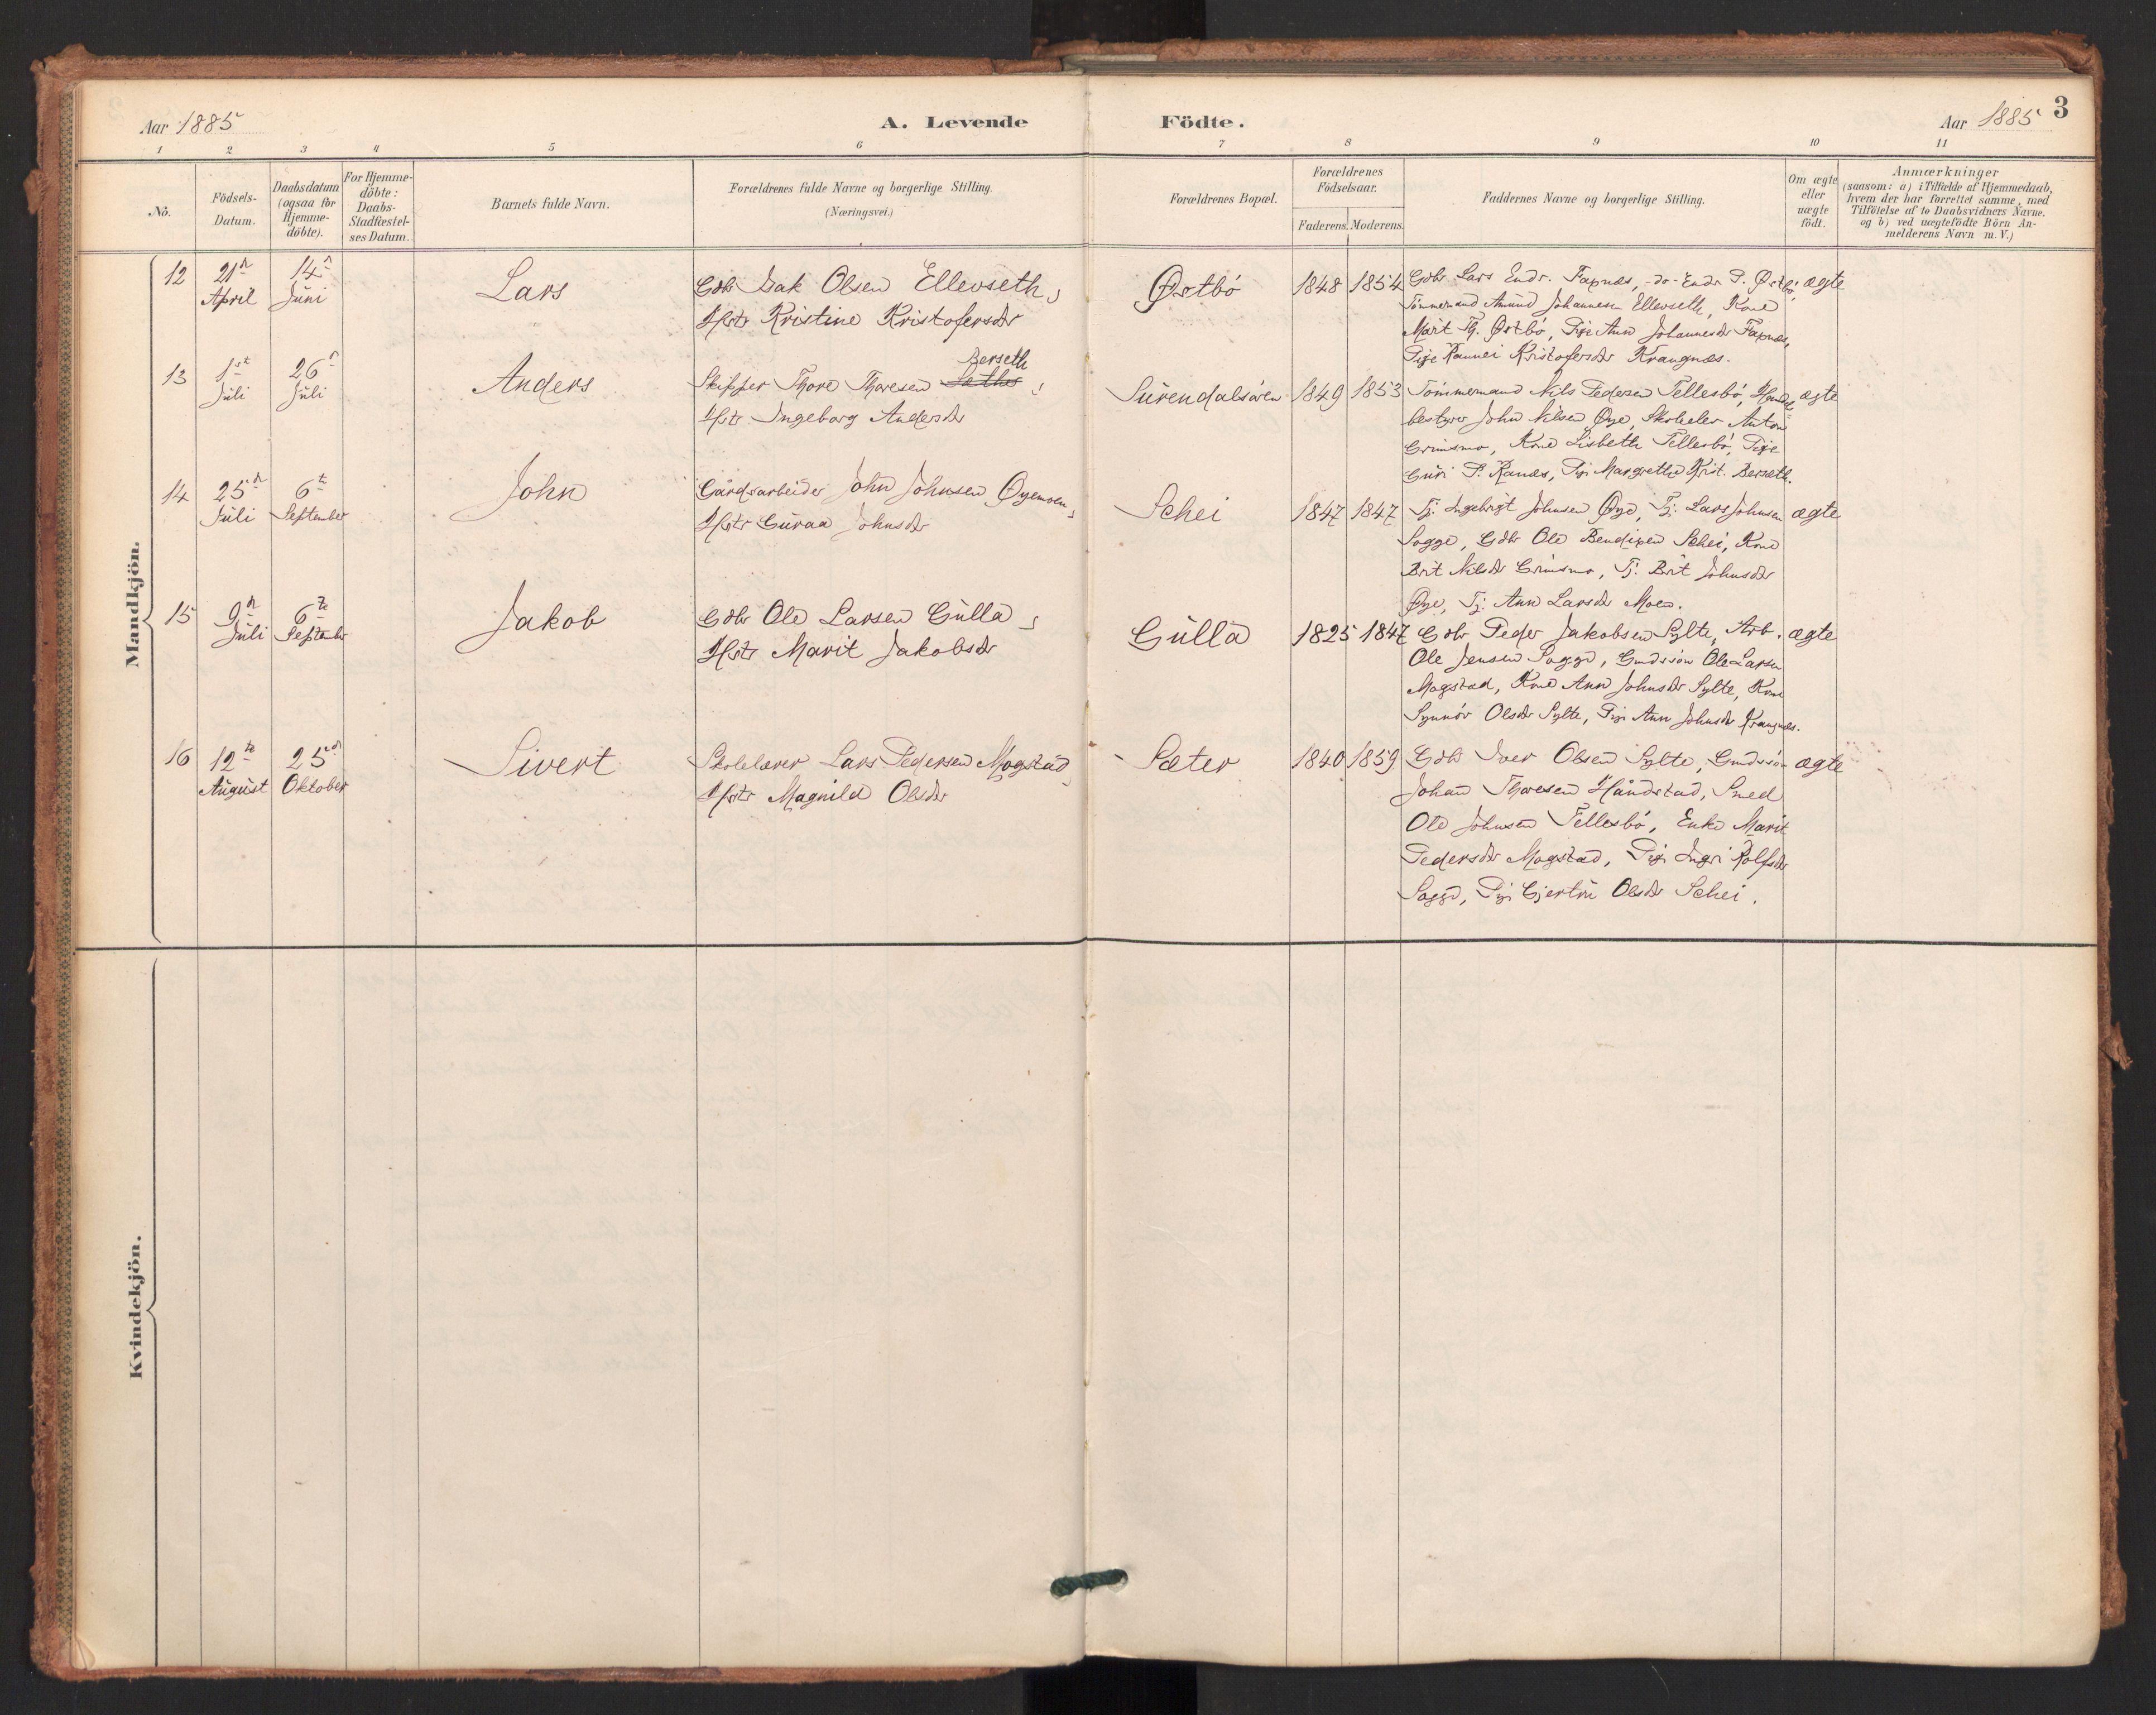 Aar 1885
A. Levende Födte.
Aar 1885
3
1 2 3 4 5 6 7 8 9 10 11
No.
Födsels-
Datum.
Daabsdatum
(ogsaa for
Hjemme-
döbte).
For Hjemme-
döbte:
Daabs-
Stadfæstel-
ses Datum.
Barnets fulde Navn.
Forældrenes fulde Navne og borgerlige Stilling.
(Næringsvei.)
Forældrenes Bopæl.
Forældrenes
Födselsaar.
Faderens. Moderens.
Faddernes Navne og borgerlige Stilling.
Om ægte
eller
uægte
födt.
Anmærkninger
(saasom: a) i Tilfælde af Hjemmedaab,
hvem der har forrettet samme, med
Tilföielse af to Daabsvidners Navne,
og b) ved uægtefödte Börn An-
melderens Navn m. V.)
Mandkjön.
12
21de
April
14de
Juni
Lars
Gdbr Isak Olsen Ellevseth,
Hstr Kristine Kristofersdr
Østbö
1848
1854
Gdbr Lars Endr. Faxnæs, -do- Endr. P. Østbö,
Tömmermand Amund Johannesen Ellevseth, Kone
Marit Th. Østbö, Pige Ann Johannesdr Faxnæs,
Pige Rannei Kristofersdr Krangnæs.
ægte
13
1ste
Juli
26de
Juli
Anders
Berseth
Skipper Thore Thoresen
Hstr Ingeborg Andersdr
Surendalsören
1849
1853
Tömmermand Nils Pedersen Tellesbö, Handels-
bestyrer John Nilsen Øye, Skolelær Anton
Grimsmo, Kone Lisbeth Tellesbö, Pige
Guri P. Ranæs, Pige Margrethe Krist. Berseth.
ægte
14
25de
Juli
6te
September
John
Gårdsarbeider John Johnsen Øyemoen,
Hstr Guraa Johnsdr
Schei
1847
1847
Tj. Ingebrigt Johnsen Øye, Tj. Lars Johnsen
Sogge, Gdbr Ole Bendixen Schei, Kone
Brit Nilsdr Grimsmo, Tj. Brit Johnsdr
Øye, Tj. Ann Larsdr Moen.
ægte
15
9de
Juli
6te
September
Jakob
Gdbr Ole Larsen Gulla,
Hstr Marit Jakobsdr
Gulla
1825
1847
Gdbr Peder Jakobsen Sylte, Arb.
Ole Jensen Sogge, Gmdssön Ole Larsen
Mogstad, Kone Ann Johnsdr Sylte, Kone
Synnöv Olsdr Sylte, Pige Ann Johnsdr Krangnæs.
ægte
16
12te
August
25de
Oktober
Sivert
Skolelærer Lars Pedersen Mogstad,
Hstr Magnild Olsdr
Sæter
1840
1859
Gdbr Iver Olsen Sylte, Gmdssön
Johan Thoresen Håndstad, Smed
Ole Johnsen Tellesbö, Enke Marit
Pedersdr Mogstad, Pige Ingri Rolfsdr
Sogge, Pige Gjertru Olsdr Schei.
ægte
Kvindekjön.